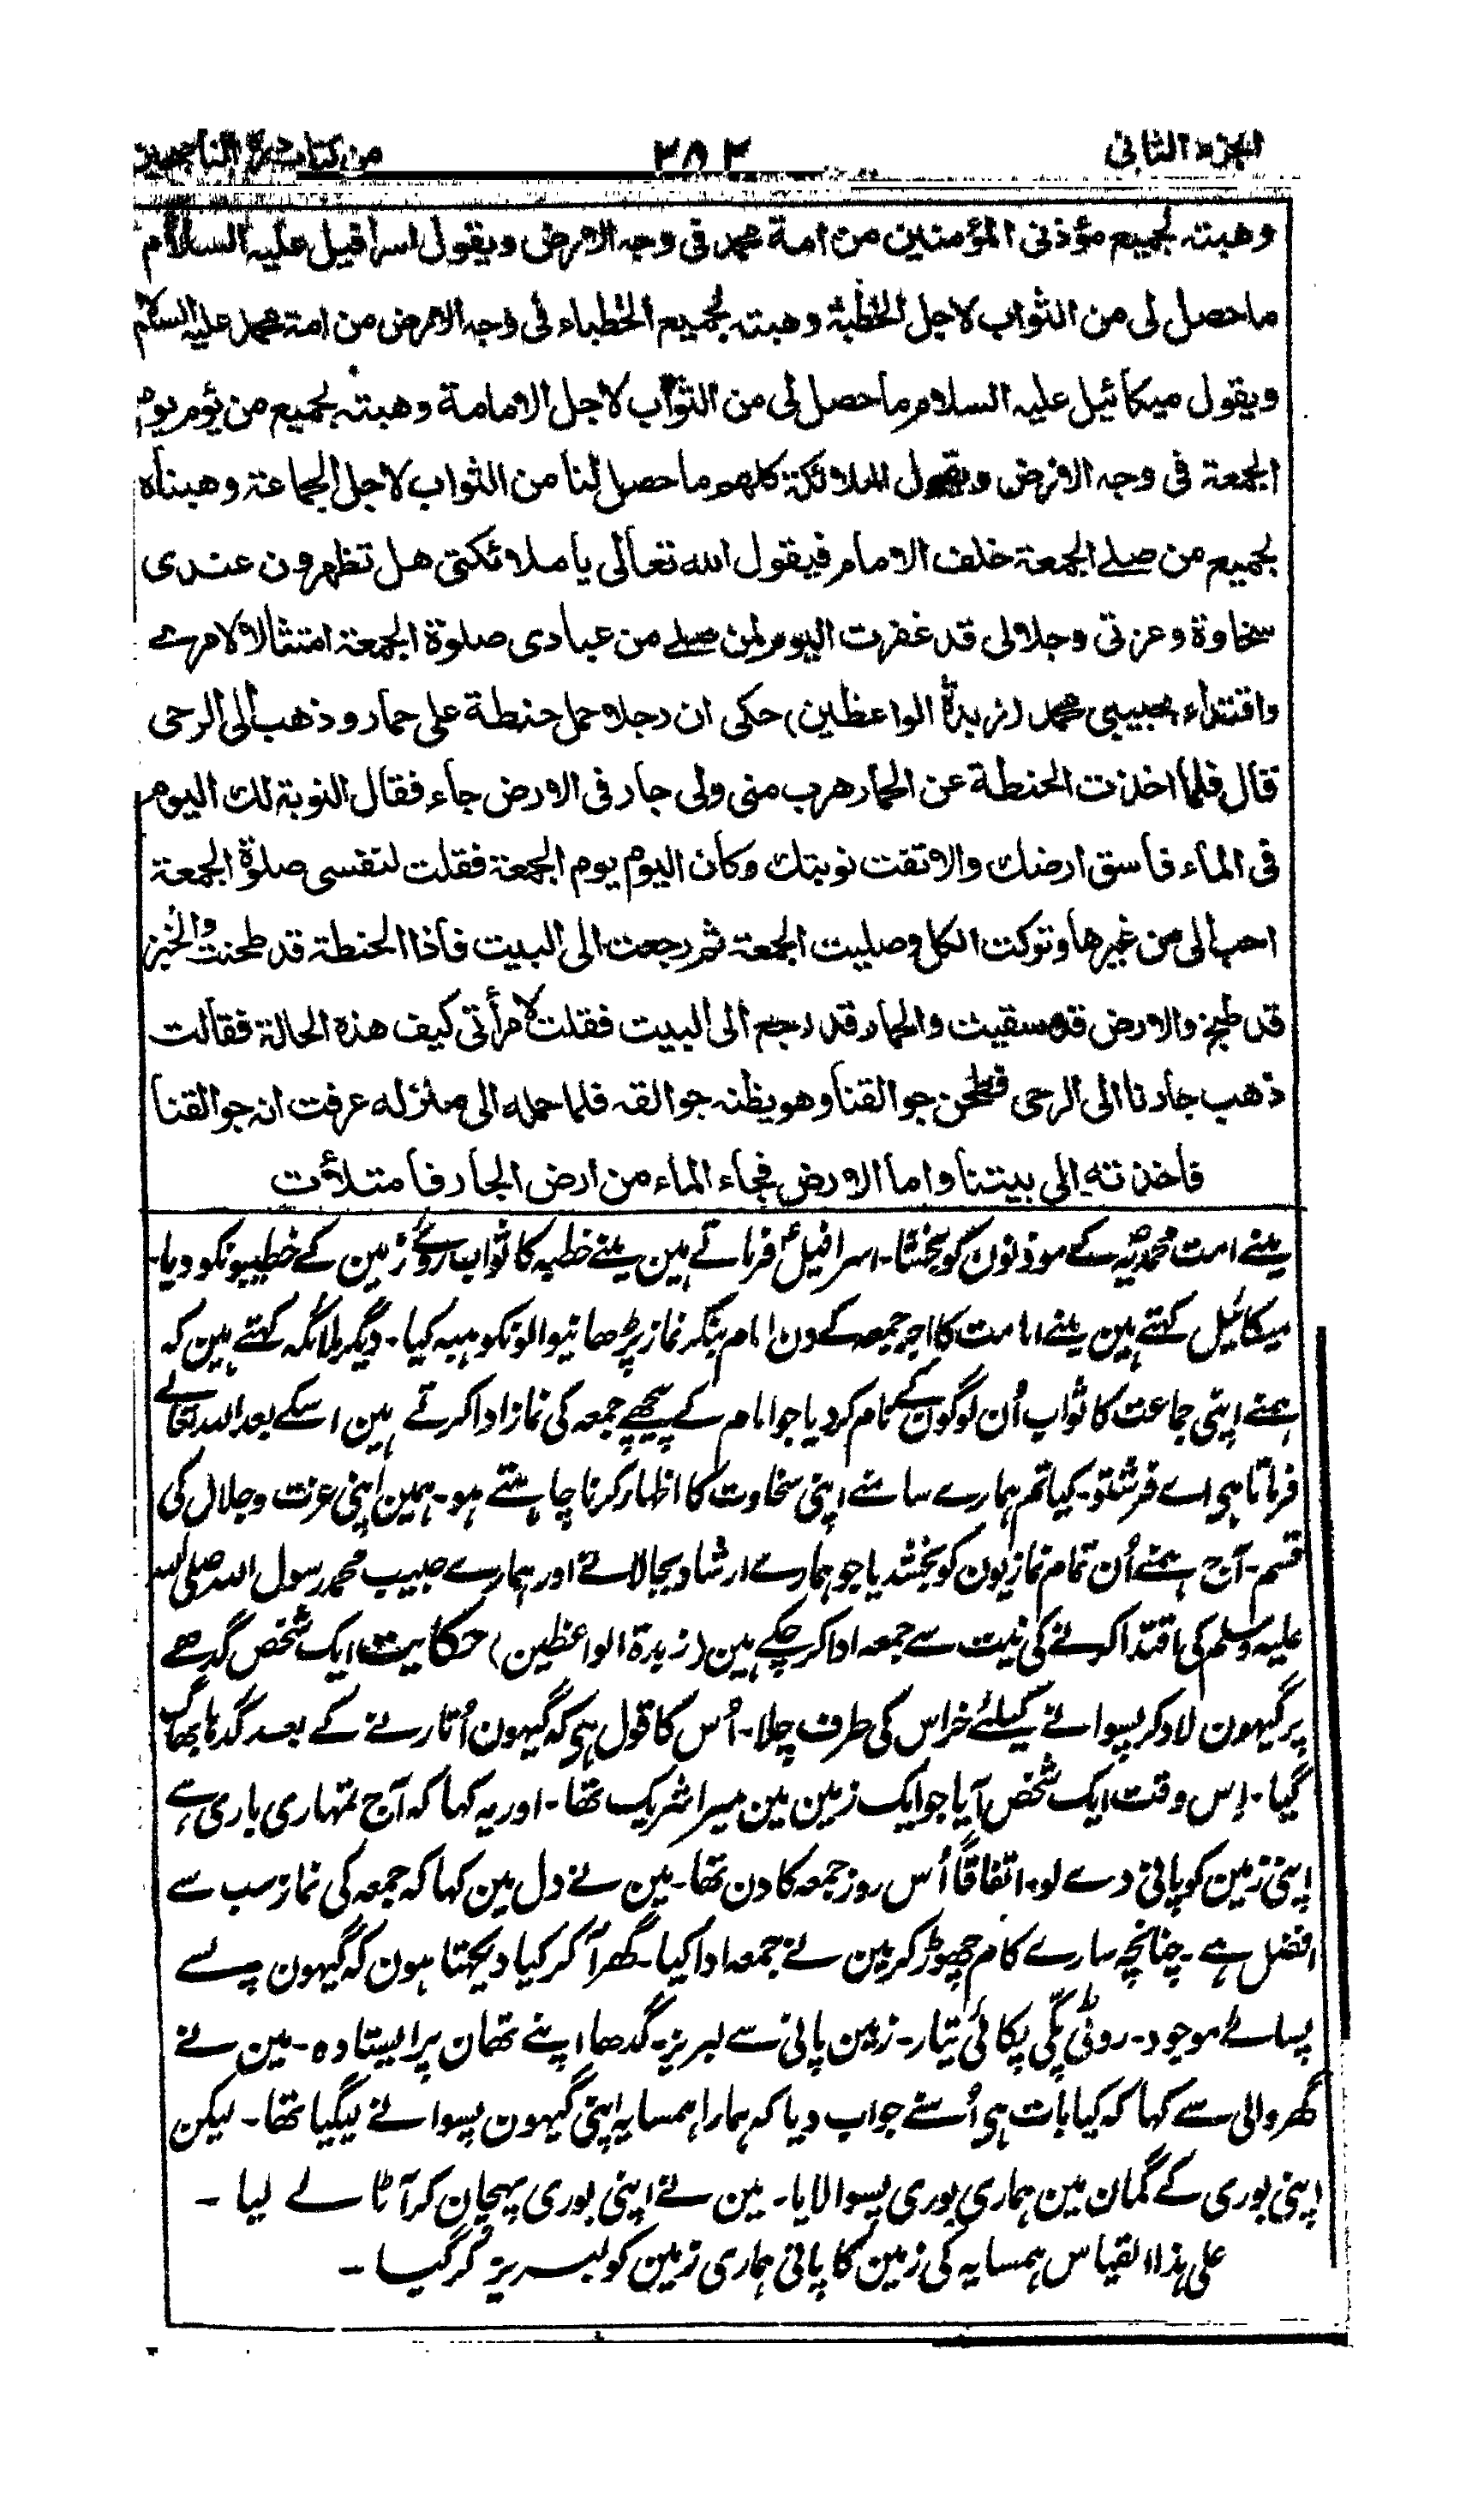 الجزء الثانی ٢٨٢ من كتاب درة الناصحین
وهبته لجمیع مؤذنی المؤمنین من امة محمد فی وجه الارض ویقول اسرافیل علیه السلام
ماحصل لی من الثواب لاجل الخطبة وهبته لجمیع الخطباء فی وجه الارض من امة محمد علیه السلام
ویقول میكائیل علیه السلام ماحصل لی من الثواب لاجل الامامة وهبته لجمیع من یؤم یوم
الجمعة فی وجه الارض ویقول الملائكة كلهم ماحصل لنا من الثواب لاجل الجماعة وهبناه
لجمیع من صلے الجمعة خلف الامام فیقول الله تعالی یا ملائكتی هل تظهرون عندی
سخاوة وعزتی وجلالی قد غفرت الیوم لمن صلے من عبادی صلوة الجمعة امتثالا لامرے
واقتداء بحبیبی محمد (زبدة الواعظین) حكی ان رجلا حمل حنطة علی حمار وذهب الی الرحی
قال فلما اخذت الحنطة عن الحمار هرب منی ولی جار فی الارض جاء فقال النوبة لك الیوم
فی الماء فاسق ارضك والا تفت نوبتك وكان الیوم یوم الجمعة فقلت لنفسی صلوة الجمعة
احب الی من غیرها وتركت الكل وصلیت الجمعة ثم رجعت الی البیت فاذا الحنطة قد طحنت والخبز
قد طبخ والارض قد سقیت والحمار قد رجع الی البیت فقلت لامرأتی كیف هذه الحالة فقالت
ذهب جارنا الی الرحی فطحن جوالقنا وهو یظنه جوالقه فلما حمله الی منزله عرفت انه جوالقنا
فاخذته الی بیتنا واما الارض فجاء الماء من ارض الجار فامتلأت
یعنے امت محمدیہ کے موذنون کو بخشا۔ اسرافیلؑ فرماتے ہین یعنے خطبہ کا ثواب روئے زمین کے خطیبونکو دیا۔
میکائیل کہتے ہین یعنے امامت کا اجر جمعہ کے دن امام بنکر نماز پڑھانیوالونکو ہبہ کیا۔ دیگر ملائکہ کہتے ہین کہ
ہمنے اپنی جماعت کا ثواب اُن لوگون کے نام کردیا جو امام کے پیچھے جمعہ کی نماز ادا کرتے ہین اسکے بعد اللہ تعالے
فرماتا ہی اے فرشتو۔ کیا تم ہمارے سامنے اپنی سخاوت کا اظہار کرنا چاہتے ہو۔ ہمین اپنی عزت وجلال کی
قسم۔ آج ہمنے اُن تمام نمازیون کو بخشدیا جو ہمارے ارشاد بجالائے اور ہمارے حبیب محمد رسول اللہ صلی اللہ
علیہ وسلم کی اقتدا کرنے کی نیت سے جمعہ ادا کر چکے ہین (زبدة الواعظین) حکایت ایک شخص گدھے
پر گیہون لاد کر پسوانے کیلئے خراس کی طرف چلا۔ اُس کا قول ہی کہ گیہون اُتارنے کے بعد گدہا بھاگ
گیا۔ اِس وقت ایک شخص آیا جو ایک زمین مین میرا شریک تھا۔ اور یہ کہا کہ آج تمہاری باری ہے
اپنی زمین کو پانی دے لو۔ اتفاقاً اُس روز جمعہ کا دن تھا۔ مین نے دل مین کہا کہ جمعہ کی نماز سب سے
افضل ہے۔ چنانچہ سارے کام چھوڑ کر مین نے جمعہ ادا کیا۔ گھر آ کر کیا دیکھتا ہون کہ گیہون پسے
پسائے موجود۔ روٹی پکی پکائی تیار۔ زمین پانی سے لبریز۔ گدھا اپنے تھان پر ایستادہ۔ مین نے
گھر والی سے کہا کہ کیا بات ہی اُسنے جواب دیا کہ ہمارا ہمسایہ اپنی گیہون پسوانے لیگیا تھا۔ لیکن
اپنی بوری کے گمان مین ہماری بوری پسوا لایا۔ مین نے اپنی بوری پہچان کر آٹا لے لیا۔
علی ہذا القیاس ہمسایہ کی زمین کا پانی ہماری زمین کو لبریز کر گیا۔